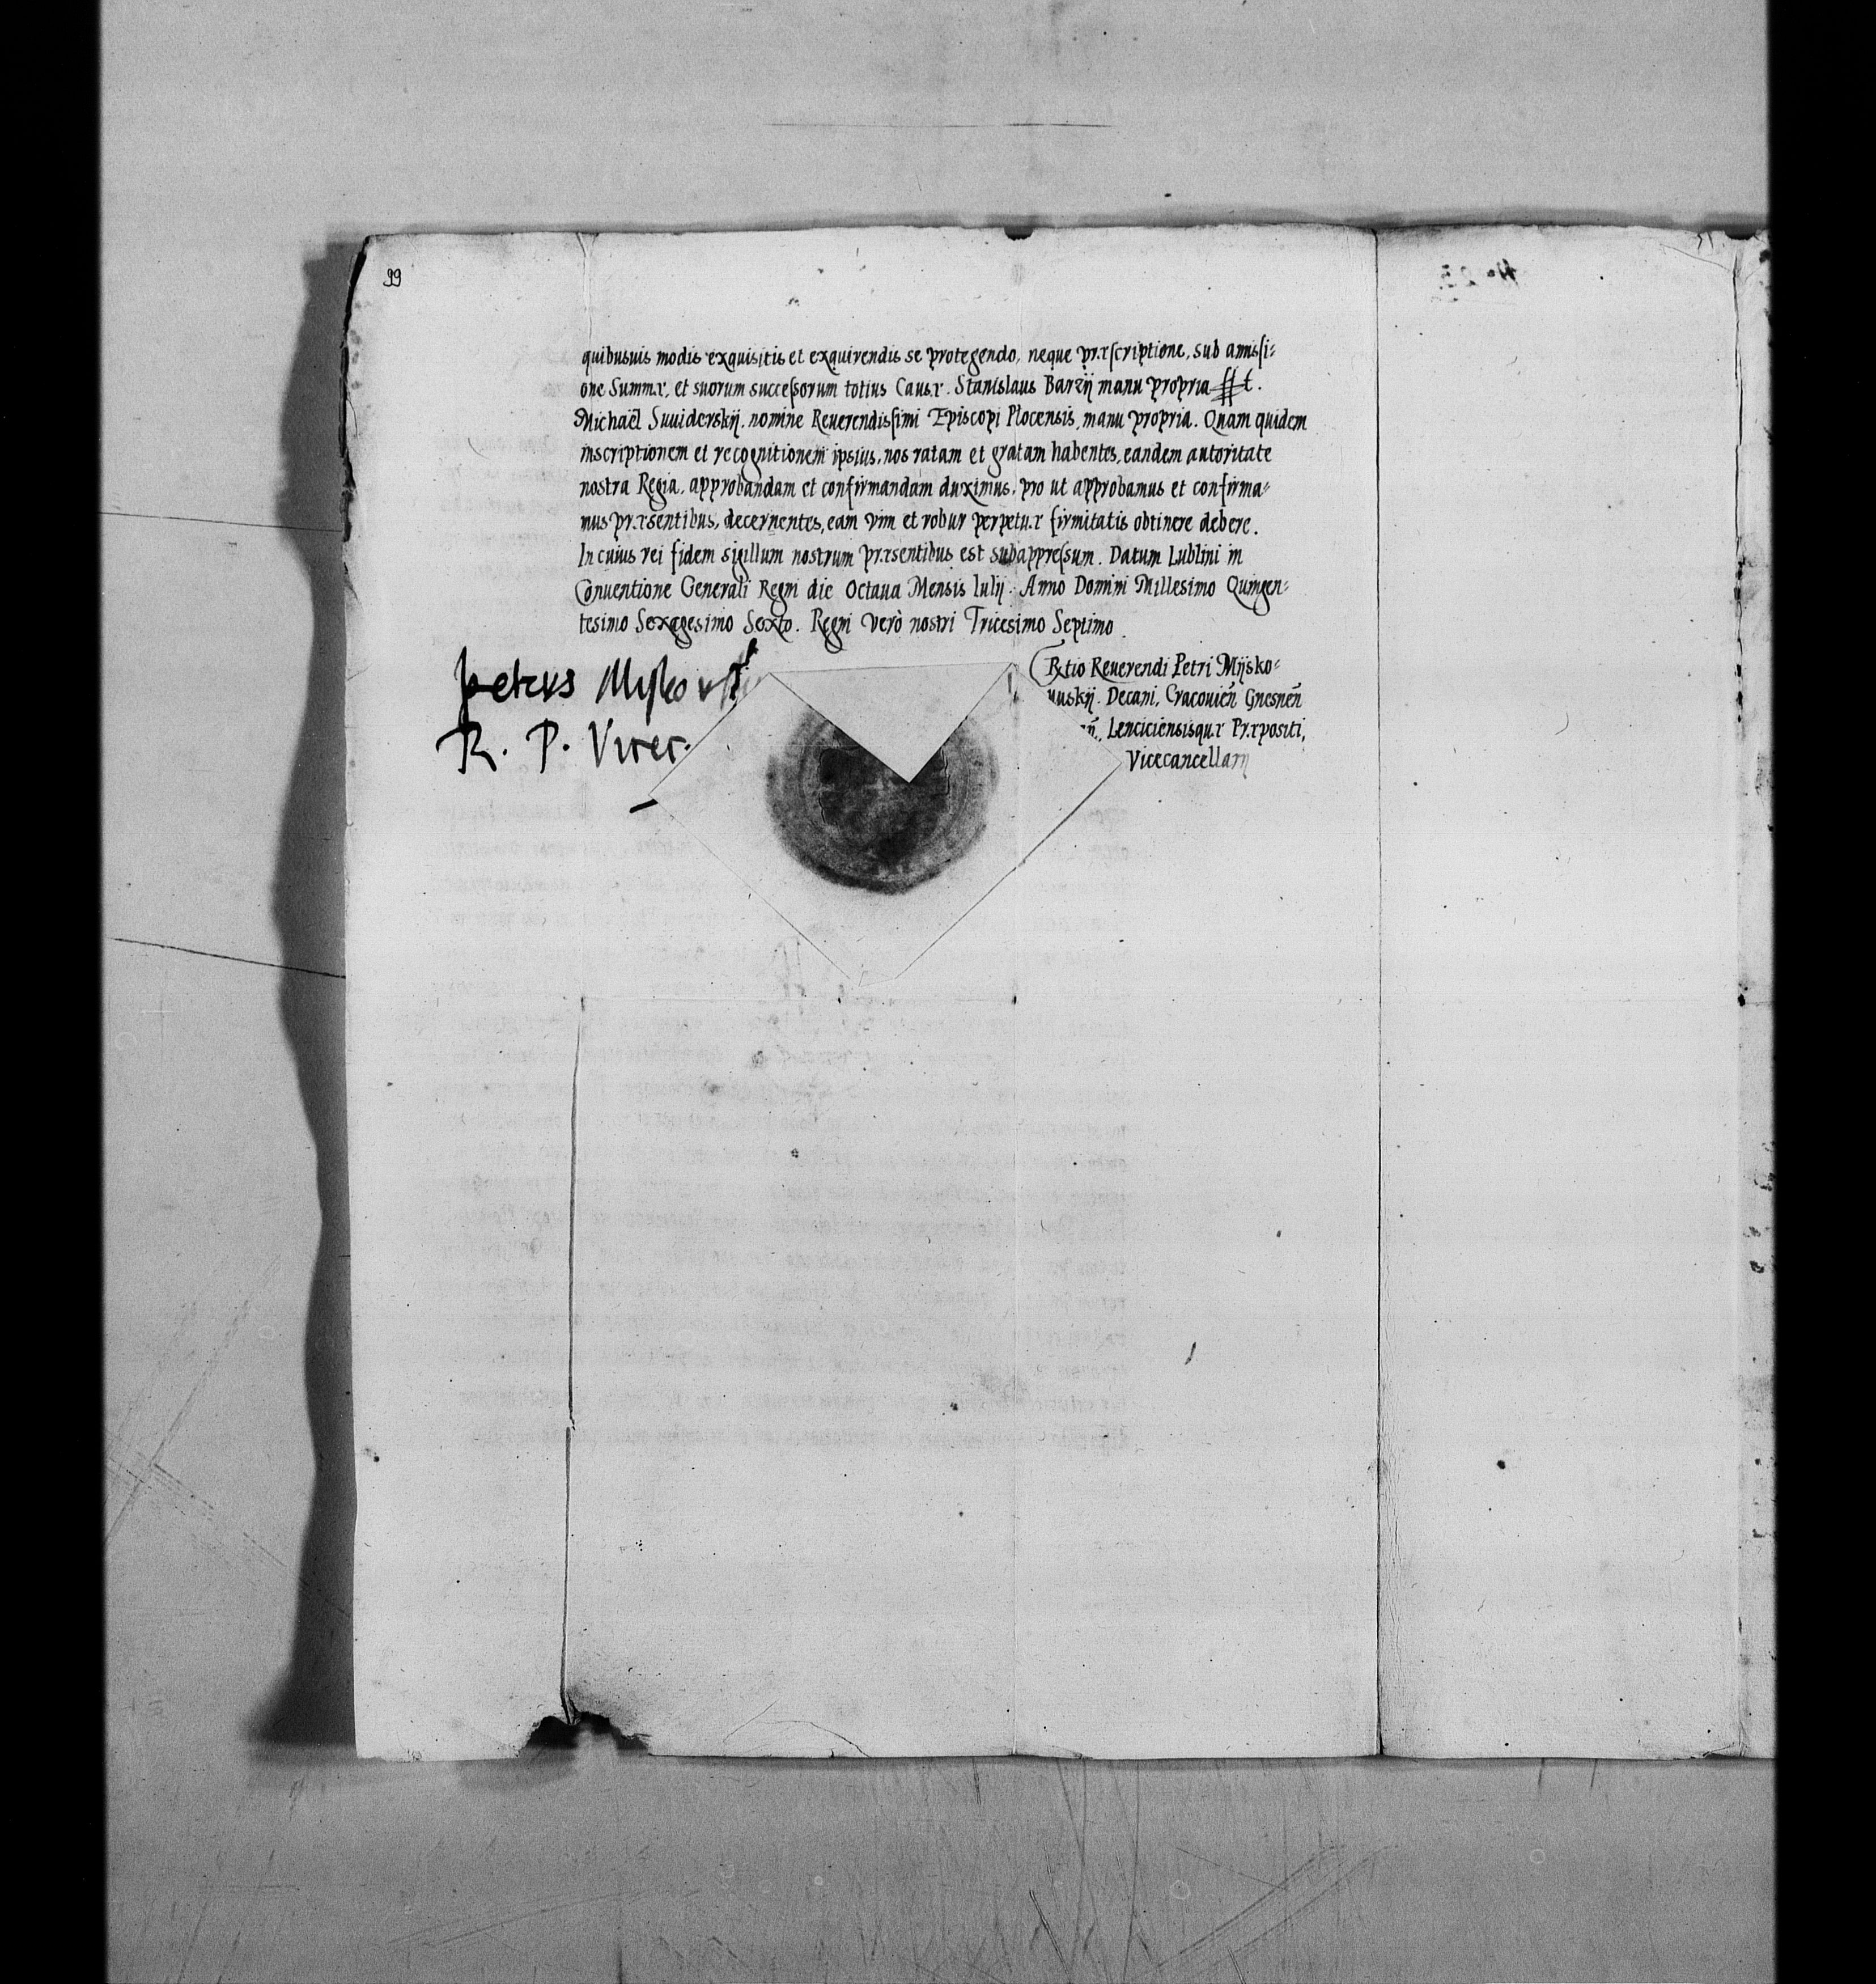 99
quibusuis modis exquisitis et exquirendis se protegendo, neque præscriptione, sub amissi-
one Summæ, et suorum successorum totius Causæ. Stanislaus Barzÿ manu propria sst.
Michaël Suuiderskÿ, nomine Reuerendissimi Episcopi Plocensis, manu propria. Quam quidem
inscriptionem et recognitionem ipsius, nos ratam et gratam habentes, eandem autoritate
nostra Regia, approbandam et confirmandam duximus, pro ut approbamus et confirma-
mus præsentibus, decernentes, eam vim et robur perpetuæ firmitatis obtinere debere.
In cuius rei fidem sigillum nostrum præsentibus est subappressum. Datum Lublini in
Conuentione Generali Regni die Octaua Mensis Iulÿ. Anno Domini Millesimo Quingen-
tesimo Sexagesimo Sexto. Regni verò nostri Tricesimo Septimo.
Petrus Myskowskÿ
R. P. Vicec.
Rtio Reuerendi Petri Mÿsko-
uuskÿ. Decani, Cracouień Gnesneń
Lenciciensisquæ Præpositi,
Vicecancellarÿ